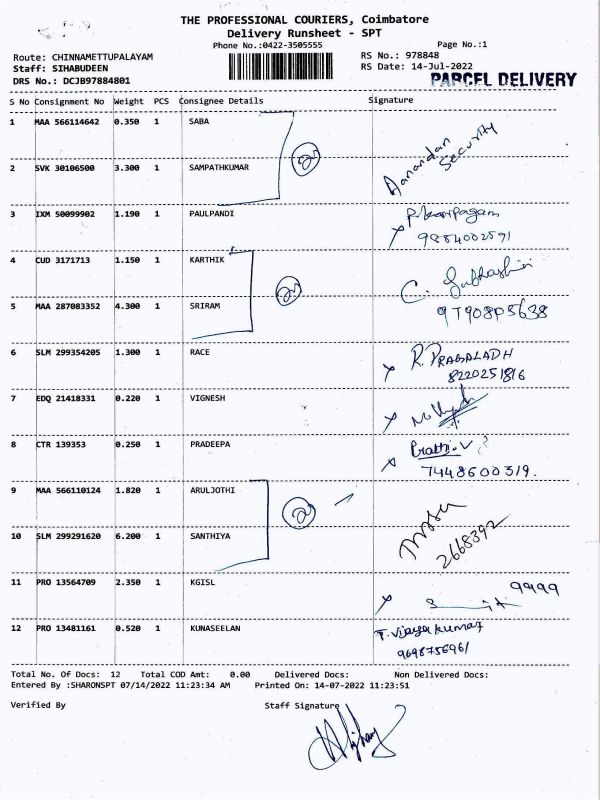 THE PROFESSIONAL COURIERS, Coimbatore
Delivery Runsheet - SPT
Phone No.:0422-3505555
Page No.:1
Route: CHINNAMETTUPALAYAM
RS No.: 978848
Staff: SIHABUDEEN
RS Date: 14-Jul-2022
DRS No.: DCJB97884801
PARCEL DELIVERY
S No Consignment No Weight PCS Consignee Details Signature
1 MAA 566114642 0.350 1 SABA
Anandan
Security
2 SVK 30106500 3.300 1 SAMPATHKUMAR
3 IXM 50099902 1.190 1 PAULPANDI
9884002591
4 CUD 3171713 1.150 1 KARTHIK
C. Subhashini
5 MAA 287083352 4.300 1 SRIRAM
6 SLM 299354205 1.300 1 RACE
R. PRAGALADH
8220251816
7 EDQ 21418331 0.220 1 VIGNESH
8 CTR 139353 0.250 1 PRADEEPA
7448600319.
9 MAA 566110124 1.820 1 ARULJOTHI
10 SLM 299291620 6.200 1 SANTHIYA
2668392
11 PRO 13564709 2.350 1 KGISL
9999
12 PRO 13481161 0.520 1 KUNASEELAN
T. Vijaya kumar
9698756961
Total No. Of Docs: 12 Total COD Amt: 0.00 Delivered Docs: Non Delivered Docs:
Entered By :SHARONSPT 07/14/2022 11:23:34 AM Printed On: 14-07-2022 11:23:51
Verified By Staff Signature